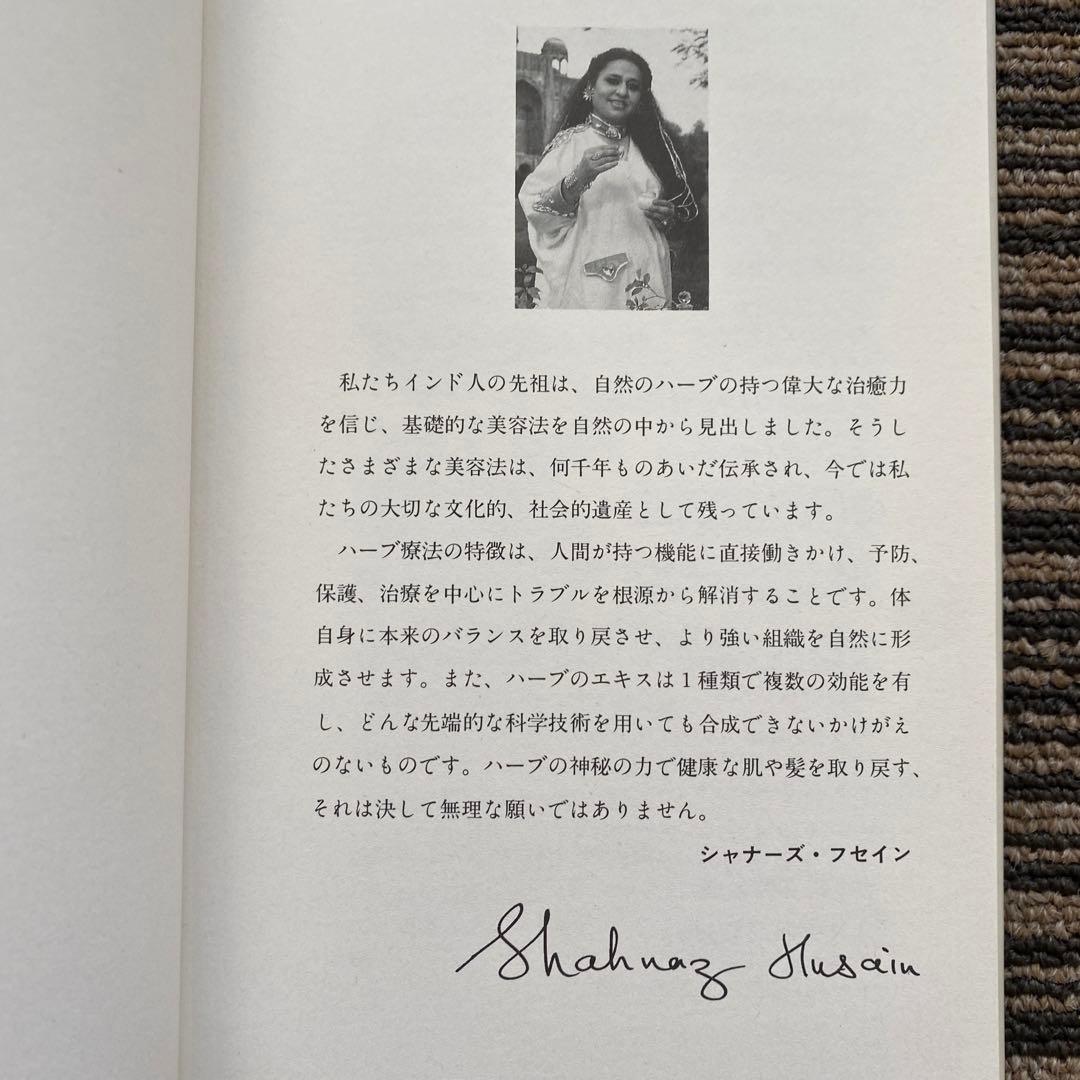 私たちインド人の先祖は、自然のハーブの持つ偉大な治癒力
を信じ、基礎的な美容法を自然の中から見出しました。そうし
たさまざまな美容法は、何千年ものあいだ伝承され、今では私
たちの大切な文化的、社会的遺産として残っています。
ハーブ療法の特徴は、人間が持つ機能に直接働きかけ、予防、
保護、治療を中心にトラブルを根源から解消することです。体
自身に本来のバランスを取り戻させ、より強い組織を自然に形
成させます。また、ハーブのエキスは1種類で複数の効能を有
し、どんな先端的な科学技術を用いても合成できないかけがえ
のないものです。ハーブの神秘の力で健康な肌や髪を取り戻す、
それは決して無理な願いではありません。
シャナーズ・フセイン
Shahnaz Husain